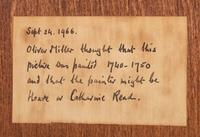 Sept 24. 1966.
Oliver Miller thought that this
picture was painted 1740-1750
and that the painter might be
Hoare or Catharine Read.